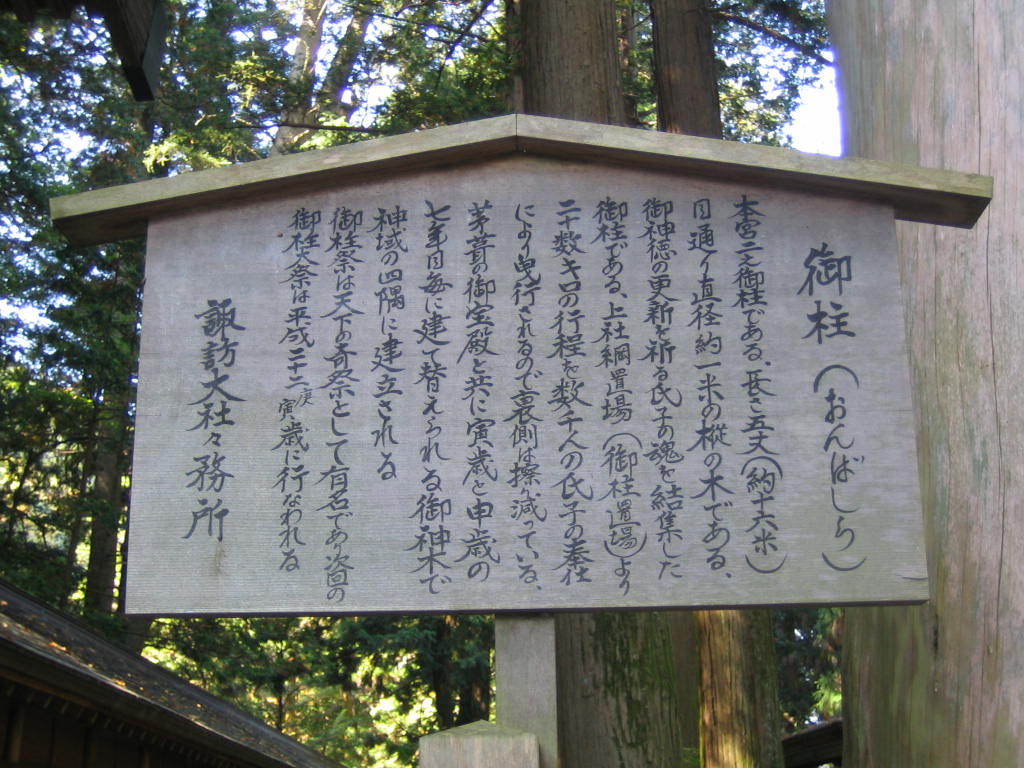 御柱（おんばしら）
本宮二之御柱である、長さ五丈（約十六米）
目通り直径約一米の樅の木である、
御神徳の更新を祈る氏子の魂を結集した
御柱である、上社綱置場（御柱置場）より
二十数キロの行程を数千人の氏子の奉仕
により曳行されるので裏側は擦り減っている、
茅葺の御宝殿と共に寅歳と申歳の
七年目毎に建て替えられる御神木で
神域の四隅に建立される
御柱祭は天下の奇祭として有名であり次回の
御柱大祭は平成二十二庚寅歳に行なわれる
諏訪大社々務所